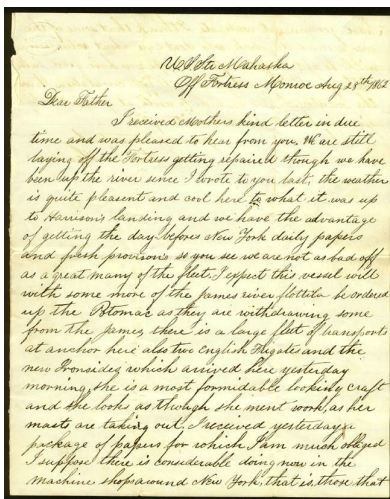 U.S. Str Mahaska
Off Fortress Monroe Aug 28th 1862
Dear Father
I received Mothers kind letter in due
time and was pleased to hear from you, We are still
laying off the Fortress getting repaired though we have
been up the river since I wrote to you last, the weather
is quite pleasent and cool here to what it was up
to Harrisons landing and we have the advantage
of getting the day before New York daily papers
and fresh provisons so you see we are not as bad off
as a great many of the fleet, I expect this vessel will
with some more of the James river flottila be ordered
up the Potomac as they are withdrawing some
from the James, there is a large fleet of transports
at anchor here also two English frigates and the
new Ironsides which arrived here yesterday
morning, she is a most formidable looking craft
and she looks as though she ment work, as her
masts are taking out, I received yesterday a
package of papers for which I am much obliged
I suppose there is considerable doing now in the
machine shops around New York, that is, those that